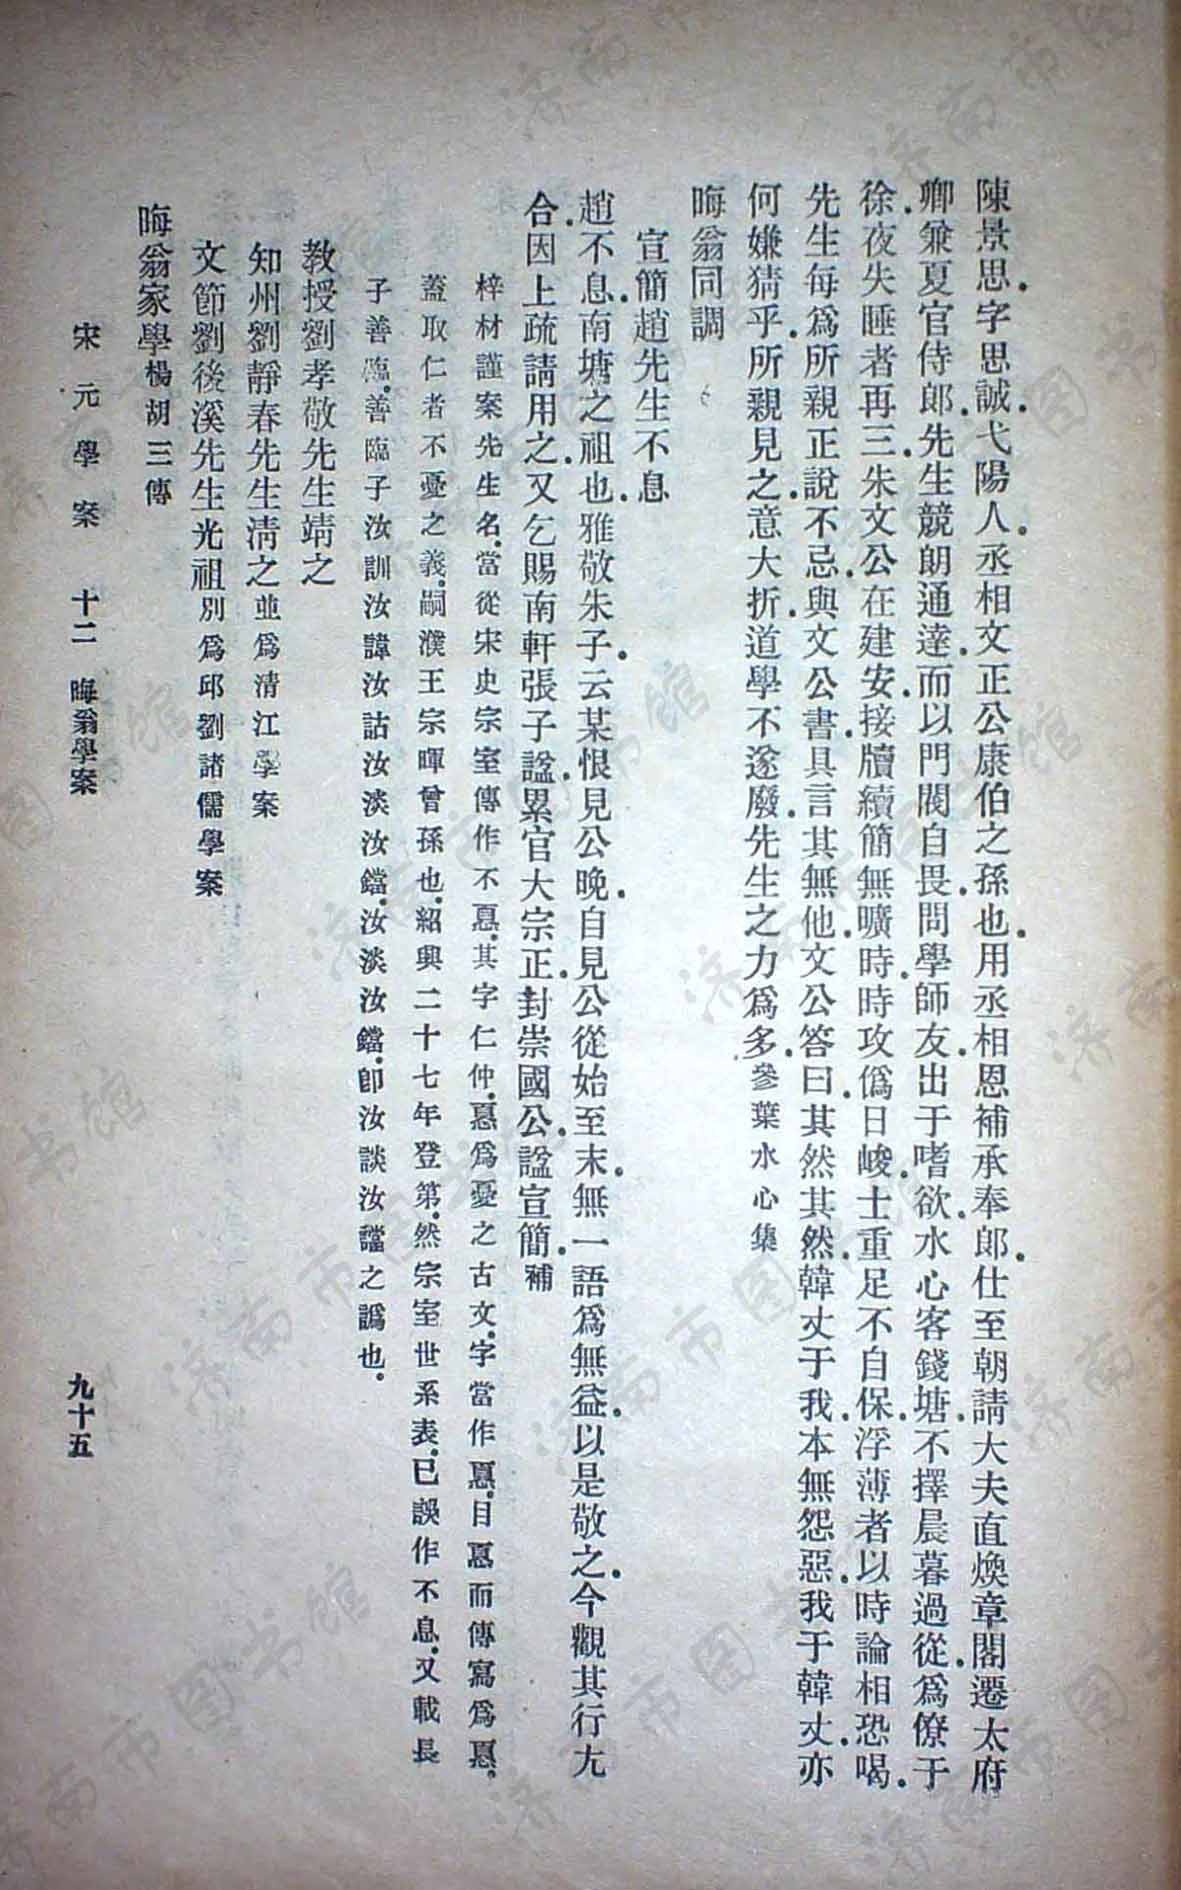 陳景思字思誠弋陽人丞相文正公康伯之孫也用丞相恩補承奉郎仕至朝請大夫直煥章閣遷太府
卿兼夏官侍郎先生競朗通達而以門閥自畏問學師友出于嗜欲水心客錢塘不擇晨暮過從爲僚于
徐夜失睡者再三朱文公在建安接牘續簡無曠時時攻僞日峻士重足不自保浮薄者以時論相恐喝
先生每爲所親正說不忌與文公書具言其無他文公答曰其然其然韓丈于我本無怨惡我于韓丈亦
何嫌猜乎所親見之意大折道學不遂廢先生之力爲多參葉水心集
晦翁同調
宣簡趙先生不息
趙不息南塘之祖也雅敬朱子云某恨見公晚自見公從始至末無一語爲無益以是敬之今觀其行尢
合因上疏請用之又乞賜南軒張子諡累官大宗正封崇國公諡宣簡補
梓材謹案先生名當從宋史宗室傳作不惪其字仁仲惪爲憂之古文字當作㥑目惪而傳寫爲惪
蓋取仁者不憂之義嗣濮王宗暉曾孫也紹興二十七年登第然宗室世系表已誤作不息又載長
子善臨善臨子汝訓汝諱汝詁汝淡汝鐺汝淡汝鐺卽汝談汝譡之譌也
教授劉孝敬先生靖之
知州劉靜春先生淸之並爲清江學案
文節劉後溪先生光祖別爲邱劉諸儒學案
晦翁家學楊胡三傳
宋元學案 十二 晦翁學案 九十五
濟南市图书馆